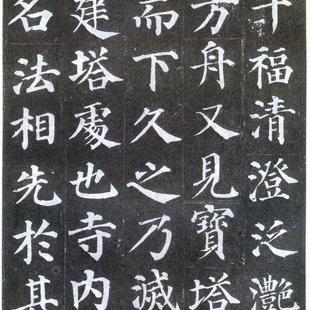 千福清澄泛灩
方舟又見寶塔
而下久之乃滅
建塔處也寺内
名法相先於其